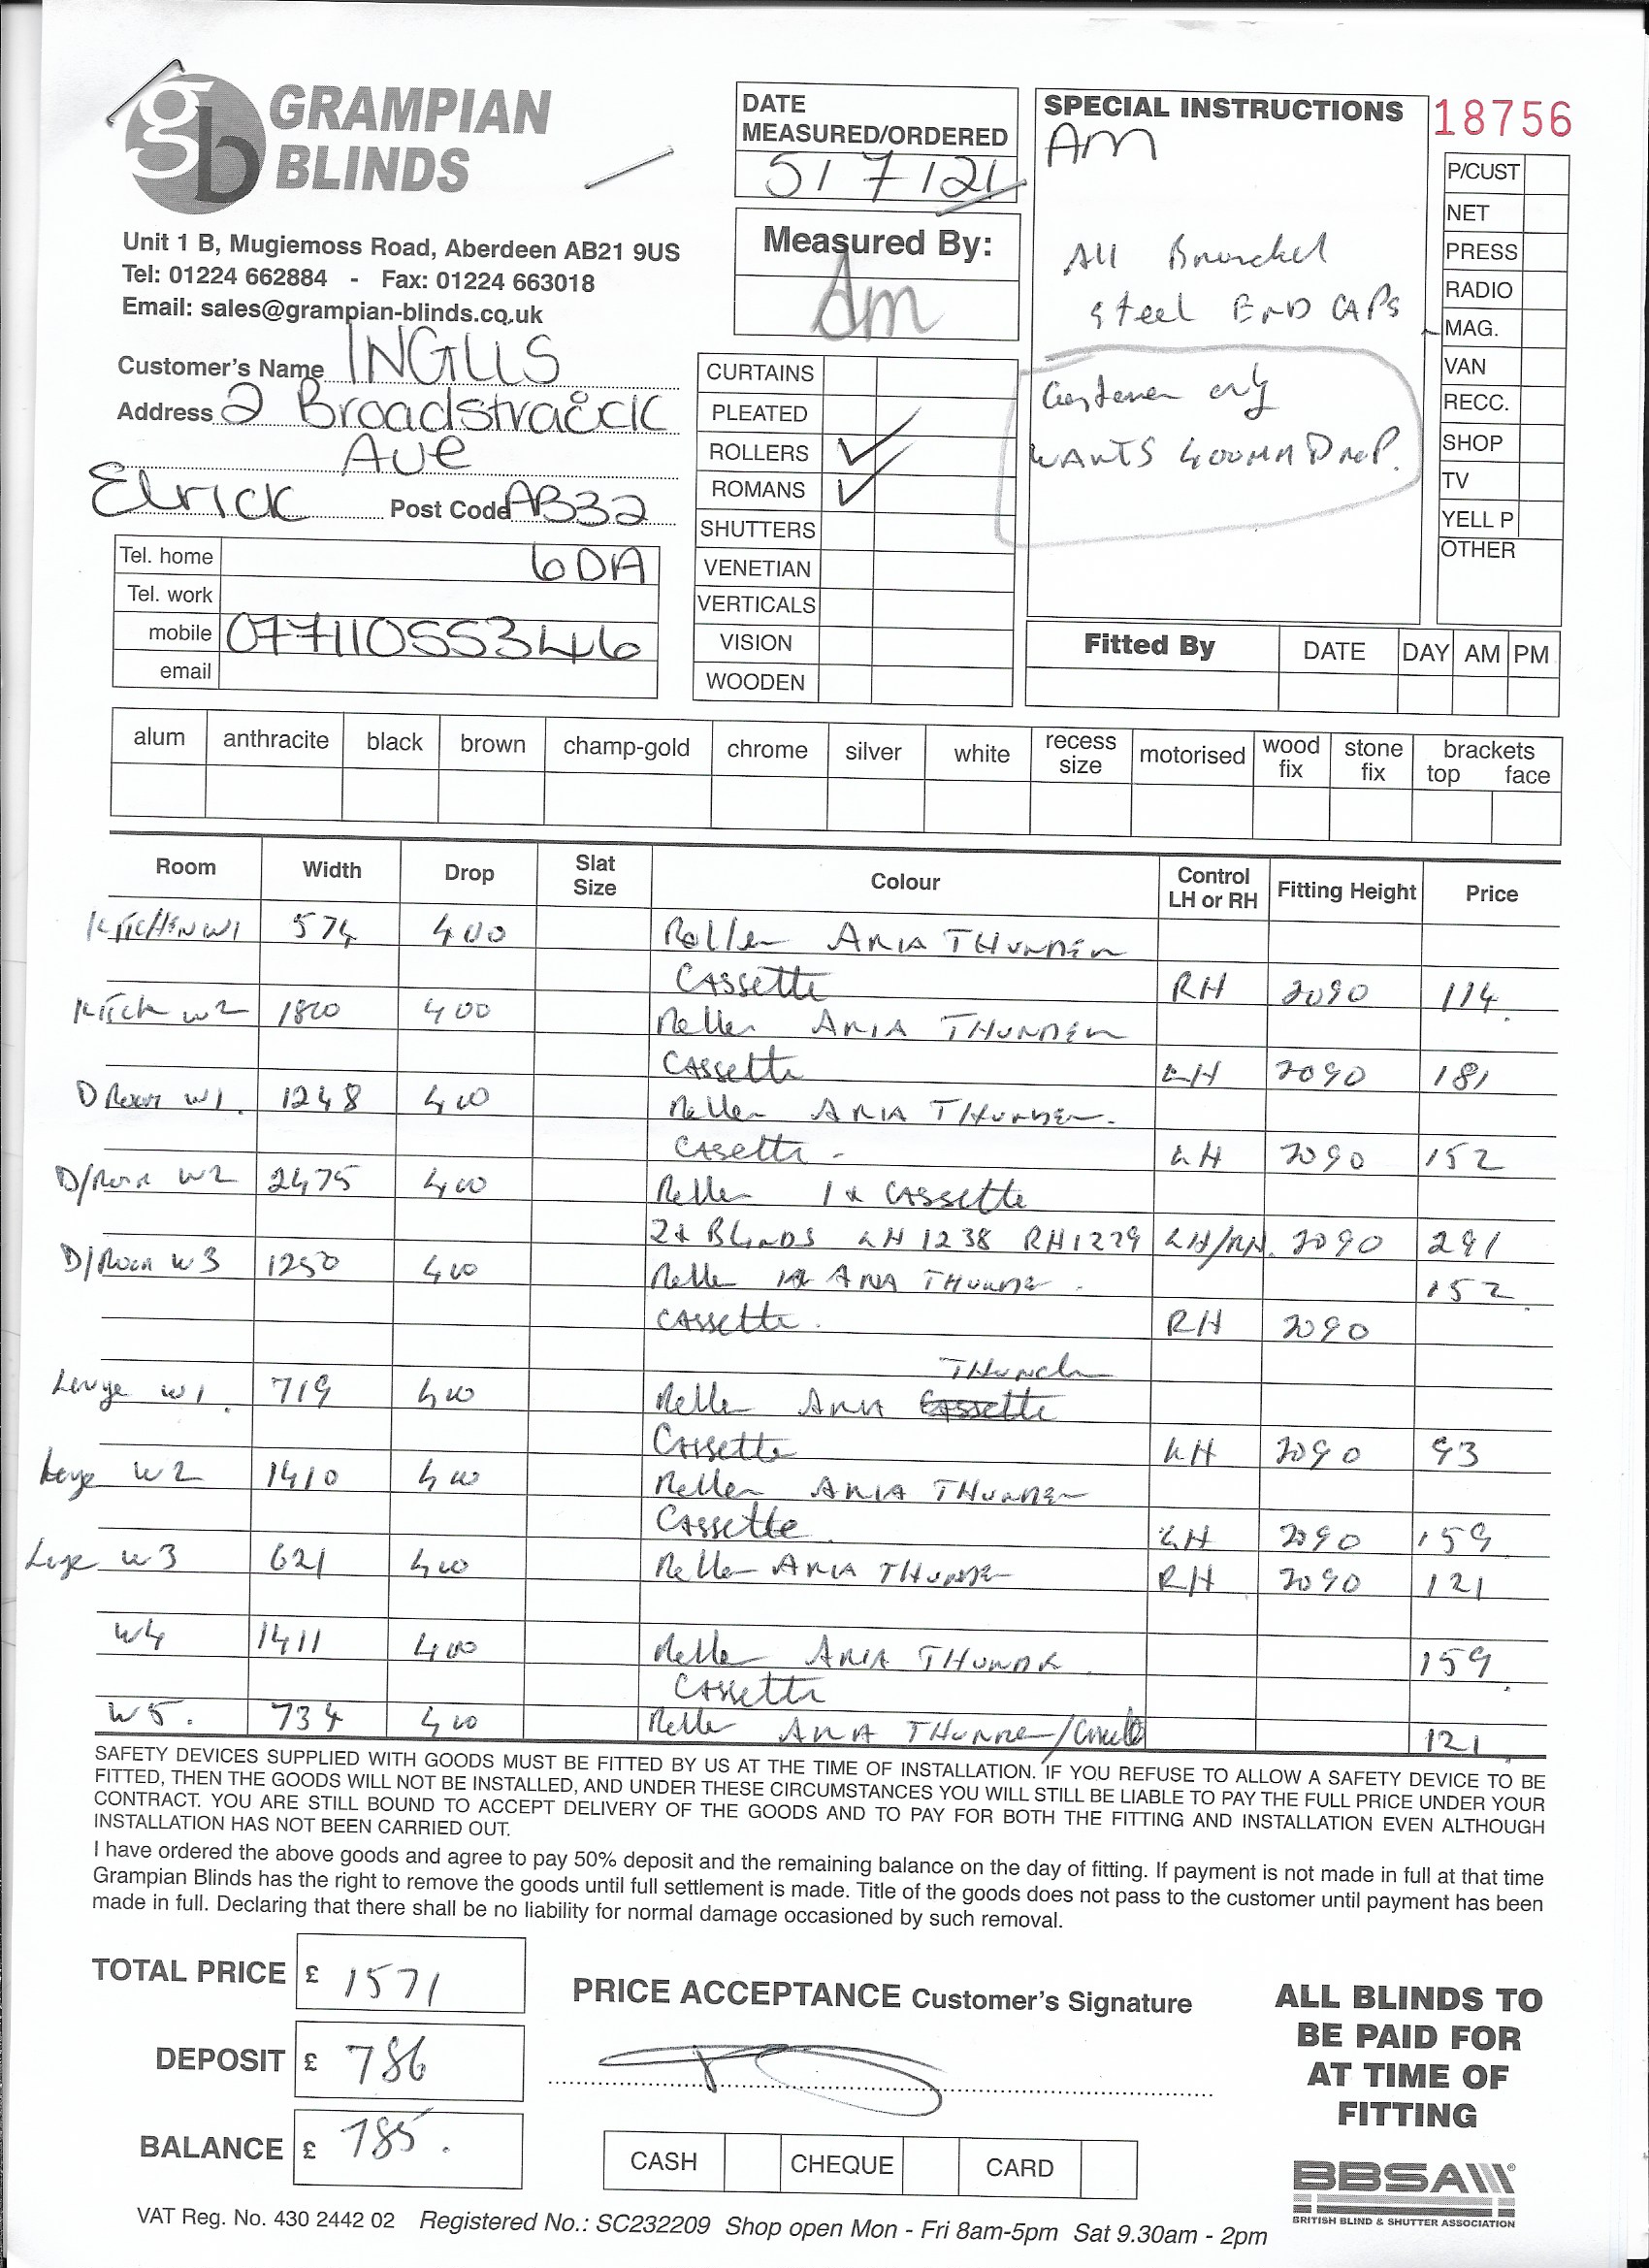 gb GRAMPIAN BLINDS
Unit 1 B, Mugiemoss Road, Aberdeen AB21 9US
Tel: 01224 662884 - Fax: 01224 663018
Email: sales@grampian-blinds.co.uk
Customer's Name INGLIS
Address 2 Broadstraick
Ave
Elrick Post Code AB32
6DA
Tel. home
Tel. work
mobile 07711055346
email
DATE
MEASURED/ORDERED
5/7/21
Measured By:
Am
CURTAINS
PLEATED
ROLLERS ✓
ROMANS ✓
SHUTTERS
VENETIAN
VERTICALS
VISION
WOODEN
SPECIAL INSTRUCTIONS
AM
All
Steel END CAPS
Customer only
WANTS 400MM DROP.
18756
P/CUST
NET
PRESS
RADIO
MAG.
VAN
RECC.
SHOP
TV
YELL P
OTHER
Fitted By DATE DAY AM PM
alum anthracite black brown champ-gold chrome silver white recess size motorised wood fix stone fix brackets top face
Room Width Drop Slat Size Colour Control LH or RH Fitting Height Price
KITCHEN W1 574 400 Roller ARIA THUNDER
CASSETTE RH 2090 114
KITCH W2 1800 400 Roller ARIA THUNDER
CASSETTE LH 2090 181
D Room W1. 1248 400 Roller ARIA THUNDER.
CASETTE - LH 2090 152
D/Room W2 2475 400 Roller 1x CASSETTE
2x BLINDS LH 1238 RH 1229 LH/RH. 2090 291
D/Room W3 1250 400 Roller ARIA THUNDER. 152
CASSETTE. RH 2090
THUNDER
Lounge W1. 719 400 Roller ARIA Cassette
Cassette LH 2090 93
Lounge W2 1410 400 Roller ARIA THUNDER
Cassette LH 2090 159
Lounge W3 621 400 Roller ARIA THUNDER RH 2090 121
W4 1411 400 Roller ARIA THUNDER 159
Cassette
W5. 734 400 Roller ARIA THUNDER/ 121
SAFETY DEVICES SUPPLIED WITH GOODS MUST BE FITTED BY US AT THE TIME OF INSTALLATION. IF YOU REFUSE TO ALLOW A SAFETY DEVICE TO BE
FITTED, THEN THE GOODS WILL NOT BE INSTALLED, AND UNDER THESE CIRCUMSTANCES YOU WILL STILL BE LIABLE TO PAY THE FULL PRICE UNDER YOUR
CONTRACT. YOU ARE STILL BOUND TO ACCEPT DELIVERY OF THE GOODS AND TO PAY FOR BOTH THE FITTING AND INSTALLATION EVEN ALTHOUGH
INSTALLATION HAS NOT BEEN CARRIED OUT.
I have ordered the above goods and agree to pay 50% deposit and the remaining balance on the day of fitting. If payment is not made in full at that time
Grampian Blinds has the right to remove the goods until full settlement is made. Title of the goods does not pass to the customer until payment has been
made in full. Declaring that there shall be no liability for normal damage occasioned by such removal.
TOTAL PRICE £ 1571
DEPOSIT £ 786
BALANCE £ 785.
PRICE ACCEPTANCE Customer's Signature
CASH CHEQUE CARD
ALL BLINDS TO
BE PAID FOR
AT TIME OF
FITTING
BBSA
BRITISH BLIND & SHUTTER ASSOCIATION
VAT Reg. No. 430 2442 02 Registered No.: SC232209 Shop open Mon - Fri 8am-5pm Sat 9.30am - 2pm